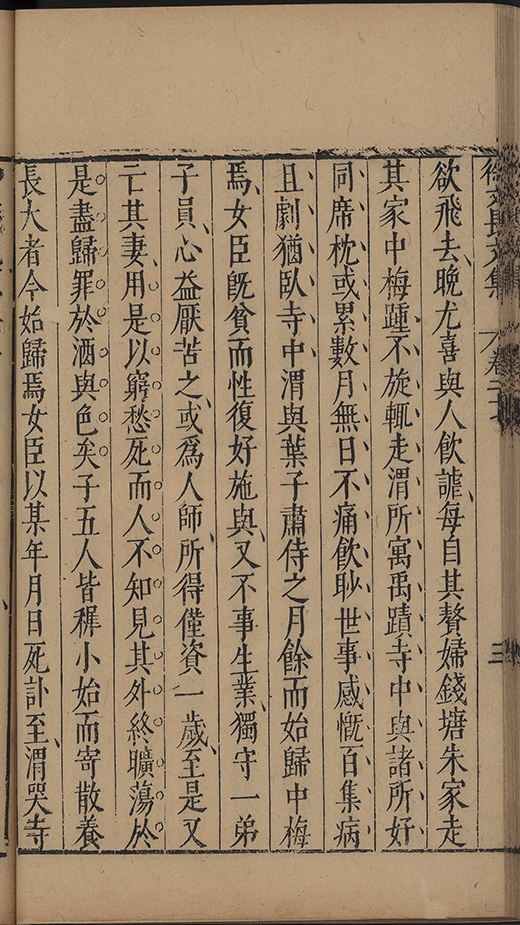 徐文長文集 卷二十 三
欲飛去晚尤喜與人飲謔每自其贅婦錢塘朱家走
其家中梅踵不旋輒走渭所寓禹蹟寺中與諸所好
同席枕或累數月無日不痛飲眇世事感慨百集病
且劇猶臥寺中渭與葉子肅侍之月餘而始歸中梅
焉女臣旣貧而性復好施與又不事生業獨守一弟
子員心益厭苦之或爲人師所得僅資一歲至是又
亡其妻用是以窮愁死而人不知見其外終曠蕩於
是盡歸罪於酒與色矣子五人皆穉小始而寄散養
長大者今始歸焉女臣以某年月日死訃至渭哭寺